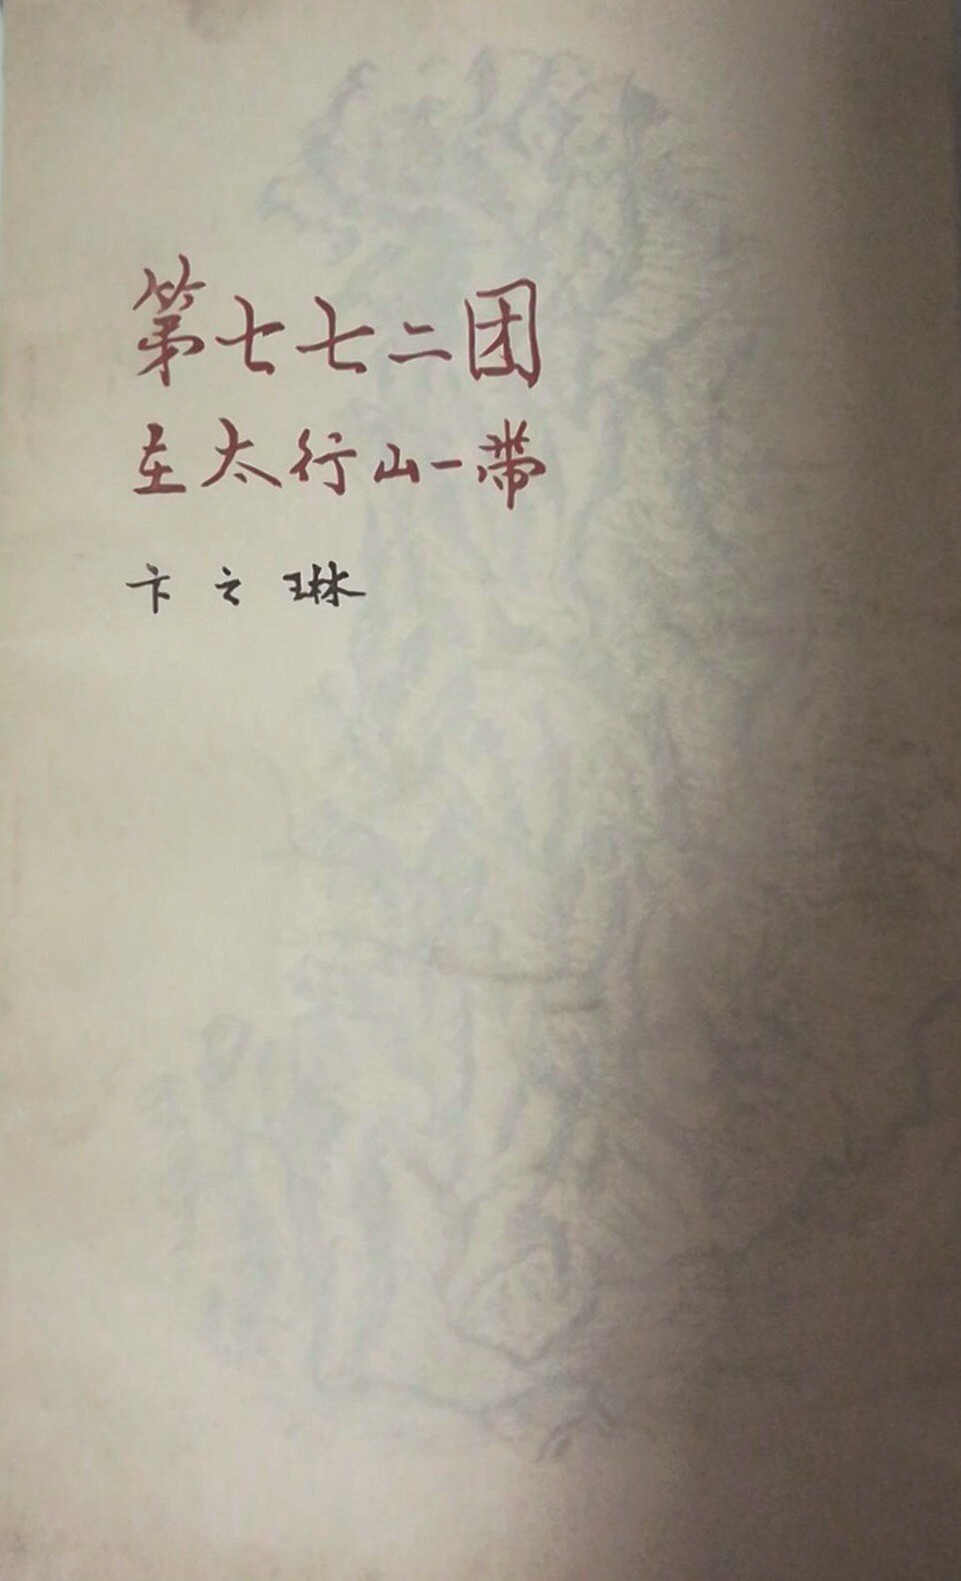 第七七二团
在太行山一带
卞之琳